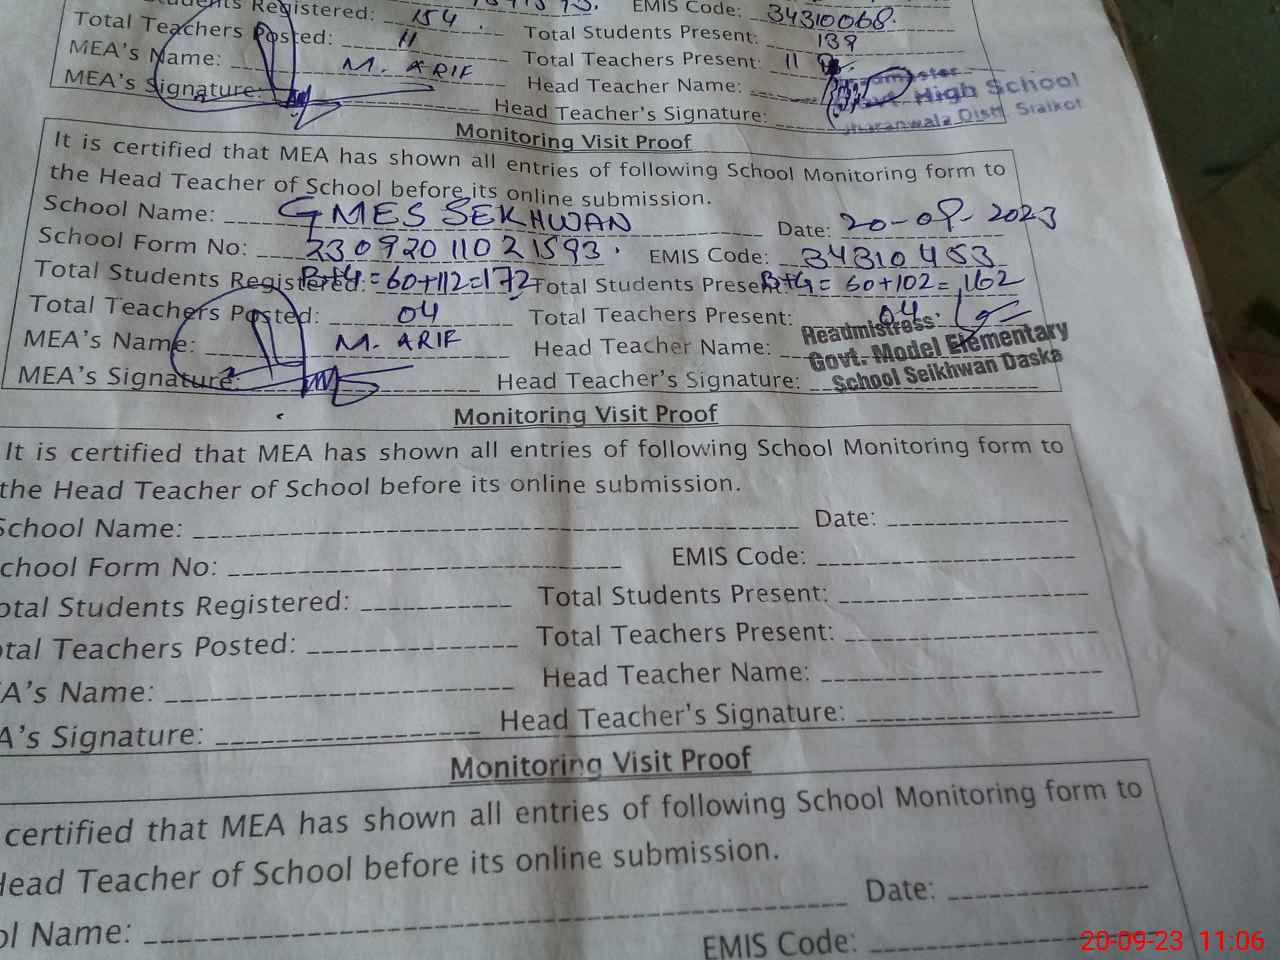 Students Registered: 154 EMIS Code: 34310068
Total Teachers Posted: 11 Total Students Present: 139
MEA's Name: M. ARIF Total Teachers Present: 11
MEA's Signature: Head Teacher Name:
Head Teacher's Signature:
High School
Distt. Sialkot
Monitoring Visit Proof
It is certified that MEA has shown all entries of following School Monitoring form to
the Head Teacher of School before its online submission.
School Name: GMES SEKHWAN Date: 20-09-2023
School Form No: 23092011021593 EMIS Code: 34310453
Total Students Registered: B+G = 60+112=172 Total Students Present: B+G = 60+102= 162
Total Teachers Posted: 04 Total Teachers Present: 04
MEA's Name: M. ARIF Head Teacher Name:
MEA's Signature: Head Teacher's Signature:
Headmistress
Govt. Model Elementary
School Seikhwan Daska
Monitoring Visit Proof
It is certified that MEA has shown all entries of following School Monitoring form to
the Head Teacher of School before its online submission.
School Name: Date:
chool Form No: EMIS Code:
otal Students Registered: Total Students Present:
tal Teachers Posted: Total Teachers Present:
A's Name: Head Teacher Name:
A's Signature: Head Teacher's Signature:
Monitoring Visit Proof
certified that MEA has shown all entries of following School Monitoring form to
Head Teacher of School before its online submission.
ol Name: Date:
EMIS Code:
20-09-23 11:06